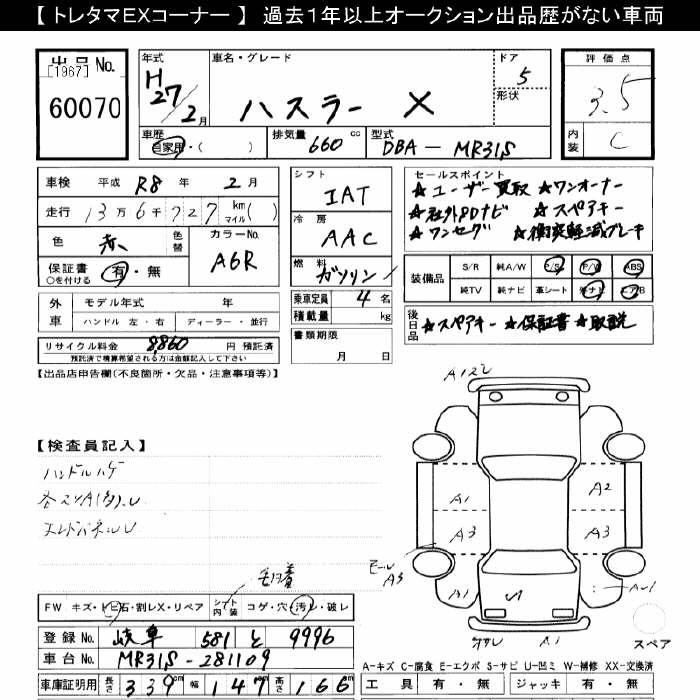 【 トレタマEXコーナー 】 過去1年以上オークション出品歴がない車両
出品No.
[1967]
60070
年式 H27/2月
車名・グレード
ハスラー X
ドア 5
形状
評価点
3.5
内装 C
車歴 自家用・( )
排気量 660 cc
型式 DBA-MR31S
車検 平成 R8 年 2 月
走行 13万6千727 km マイル( )
色 赤 色替
カラーNo. A6R
保証書 ○を付ける 有・無
外車 モデル年式 年
ハンドル 左・右 ディーラー・並行
リサイクル料金 8,860 円 預託済
預託済で積算希望される方は金額記入して下さい
シフト IAT
冷房 AAC
燃料 ガソリン
乗車定員 4 名
積載量 kg
書類期限
月 日
セールスポイント
★ユーザー買取 ★ワンオーナー
★社外SDナビ ★スペアキー
★ワンセグ ★衝突軽減ブレーキ
装備品 S/R 純A/W P/S P/W ABS
純TV 純ナビ 革シート 外ナビ エアB
後日品 ★スペアキー ★保証書 ★取説
【出品店申告欄(不良箇所・欠品・注意事項等)】
【検査員記入】
ハンドルハゲ
エンドパネルU
A1
A2
A3
A3
モール A3
A1
A1
FW キズ・トビ石・割レX・リペア シート内装 コゲ・穴・汚レ・破レ
登録No. 岐阜 581 と 9996
車台No. MR31S-281109
車庫証明用 長さ 339cm 幅 147cm 高さ 166cm
スペア
A-キズ C-腐食 E-エクボ S-サビ U-凹ミ W-補修 XX-交換済
工具 有・無 ジャッキ 有・無